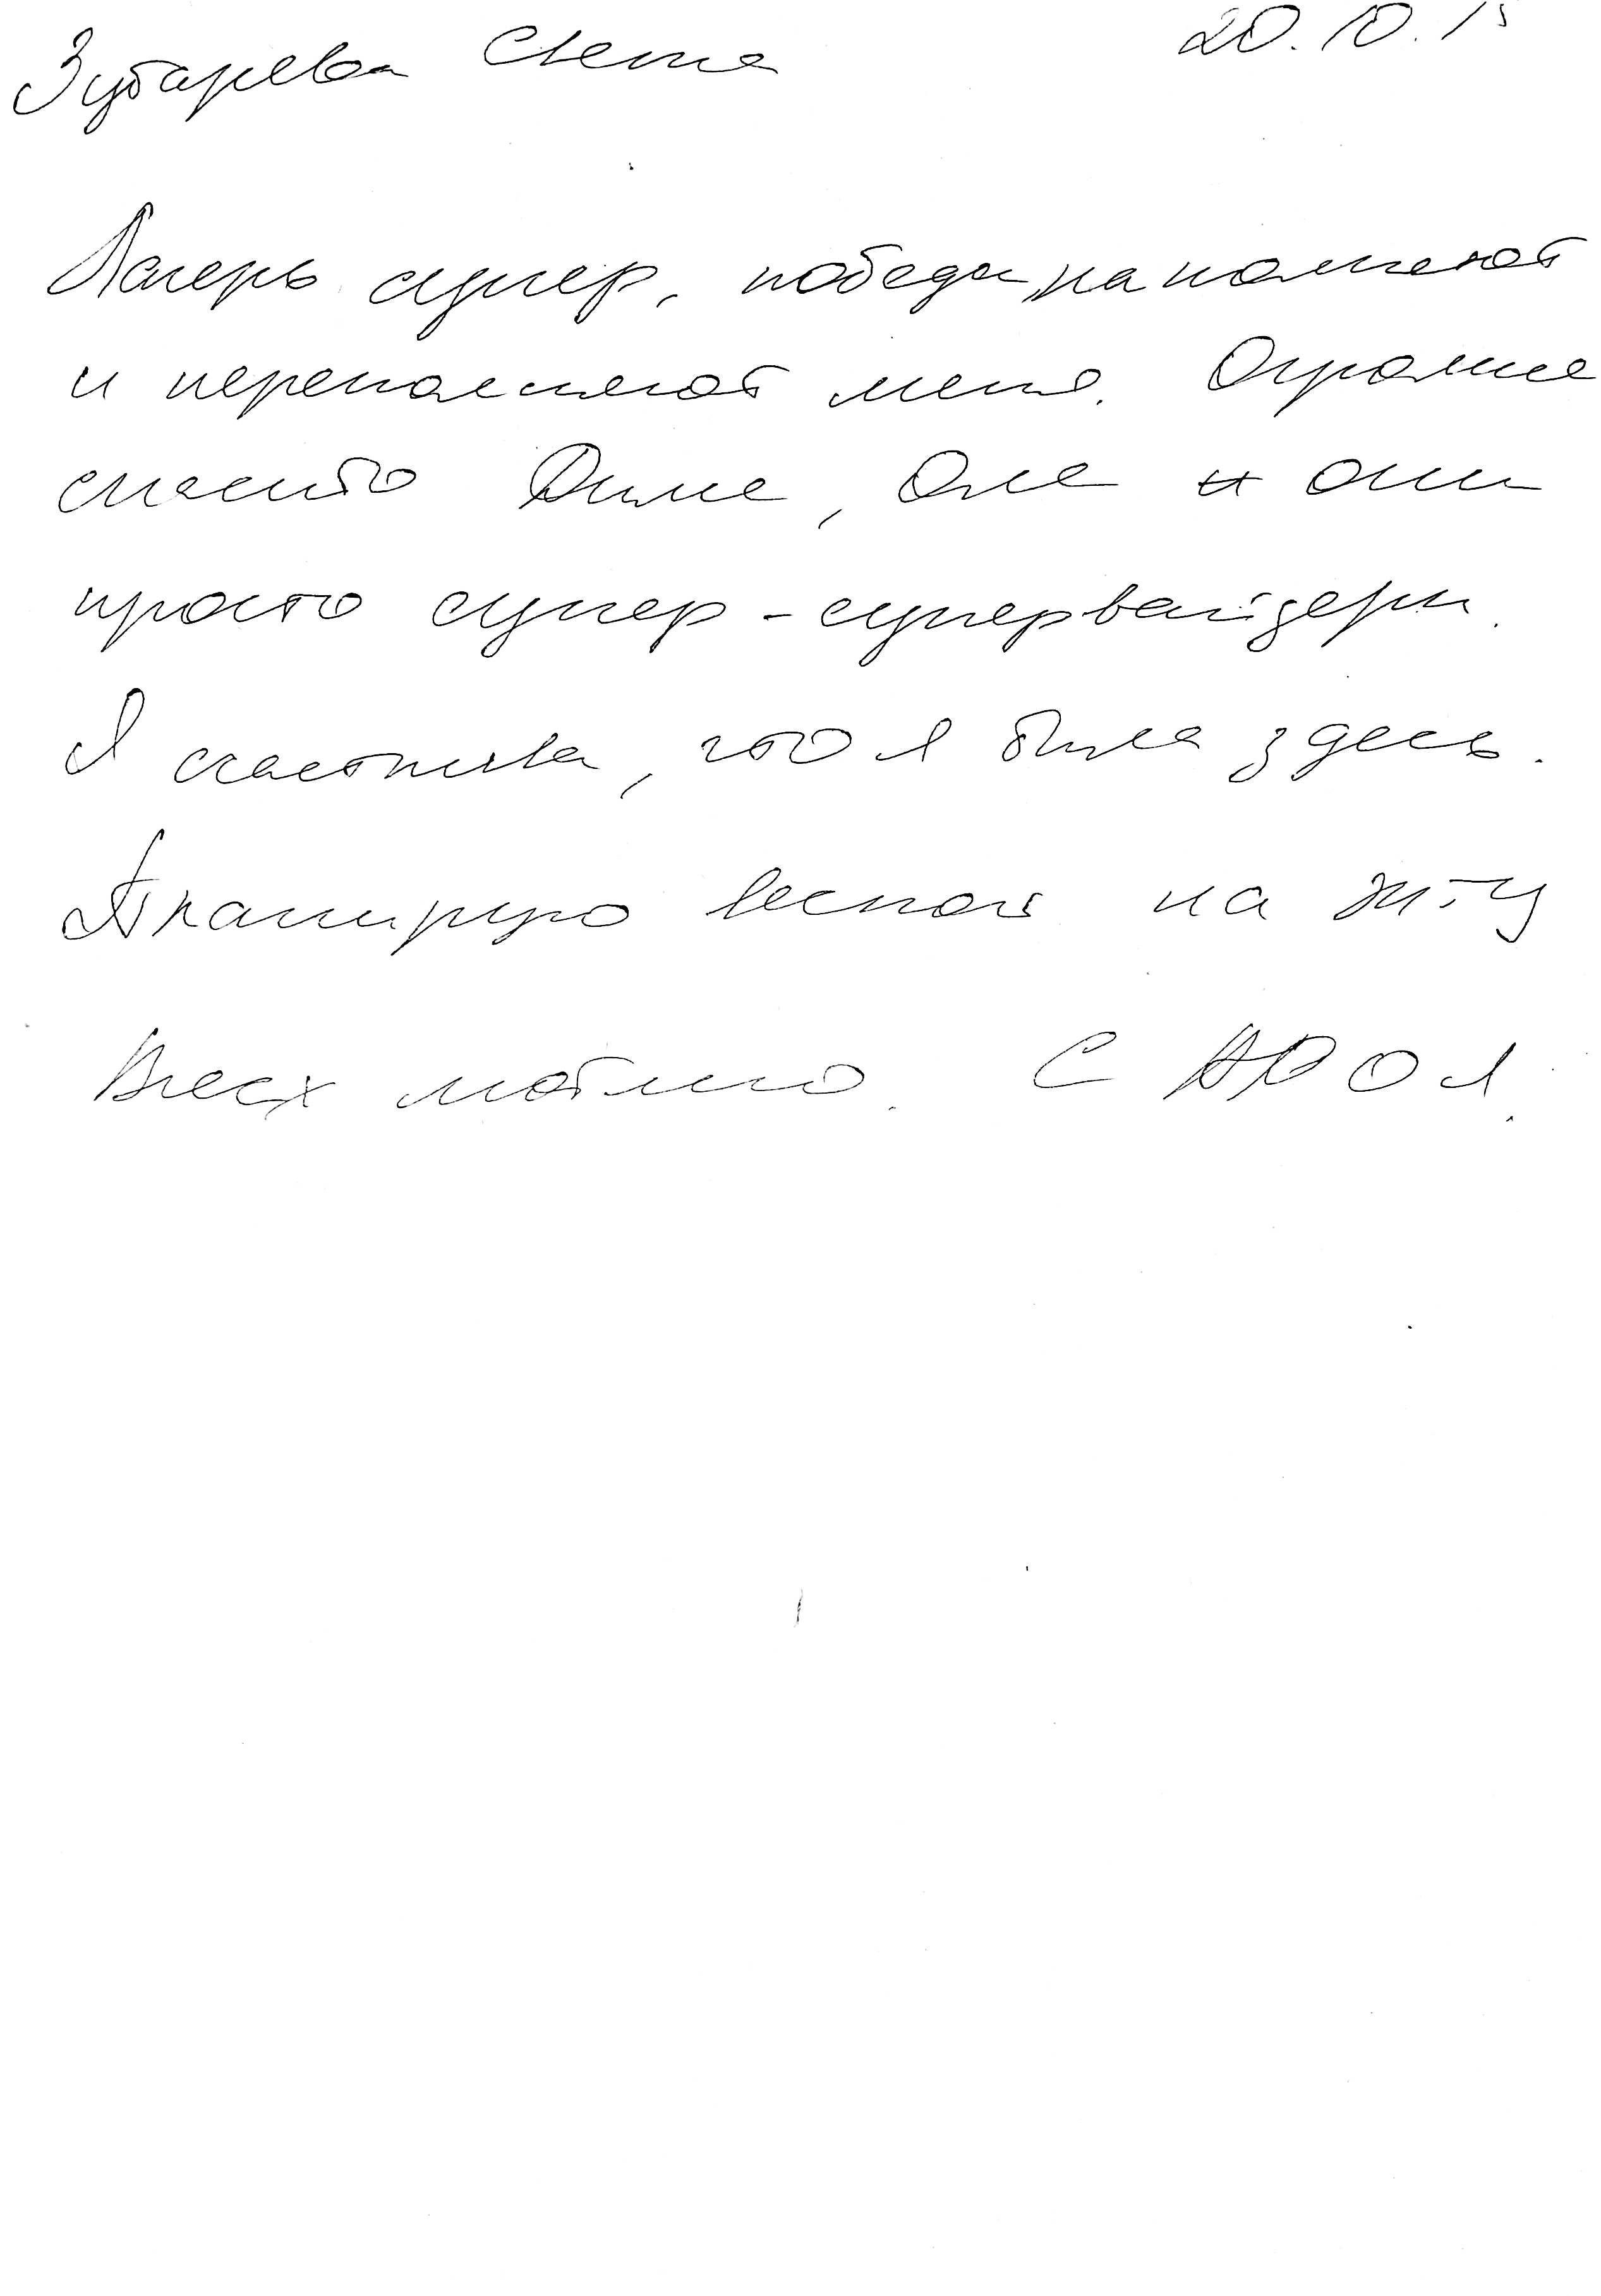 Зубарева Света 20.10.15
Лагерь супер, победы наполняют
и переполняют меня. Огромное
спасибо Диме, Оле и они
просто супер-супервайзеры.
Я счастлива, что я была здесь.
Планирую весной на
Всех люблю. С